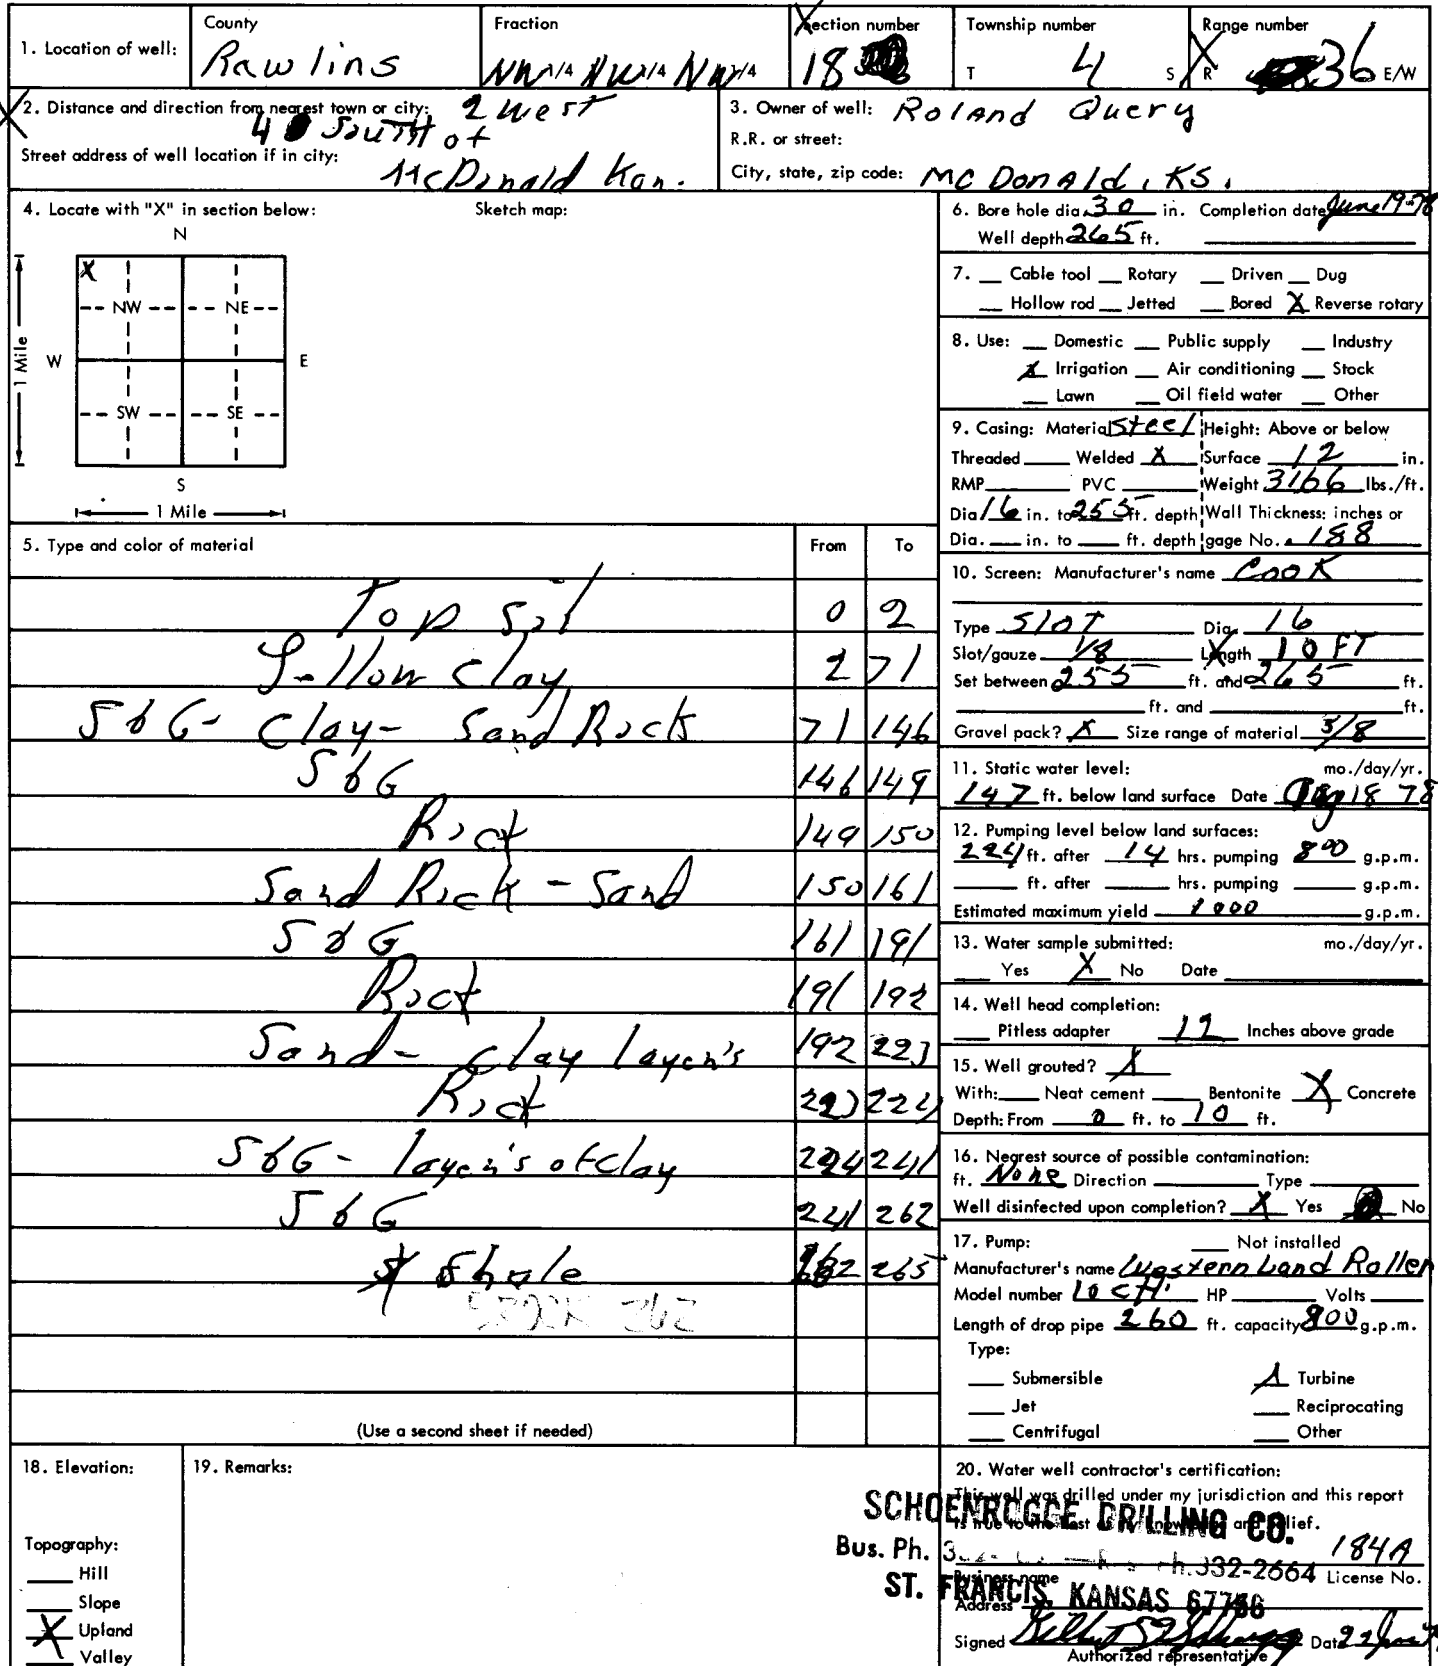 1. Location of well: County Rawlins Fraction NW 1/4 NW 1/4 NW 1/4 Section number 18 Township number T 4 S Range number R 36 E/W
2. Distance and direction from nearest town or city: 2 west
4 South of
Street address of well location if in city:
McDonald Kan.
3. Owner of well: Roland Query
R.R. or street:
City, state, zip code: McDonald, KS.
4. Locate with "X" in section below: Sketch map:
N
X
NW NE
W E
1 Mile
SW SE
S
1 Mile
5. Type and color of material From To
Top Soil 0 2
Yellow Clay 2 71
S&G- Clay- Sand Rock 71 146
S&G 146 149
Rock 149 150
Sand Rock - Sand 150 161
S&G 161 191
Rock 191 192
Sand- Clay layer's 192 223
Rock 223 224
S&G- layer's of Clay 224 241
S&G 241 262
Shale 262 265
(Use a second sheet if needed)
6. Bore hole dia. 30 in. Completion date June 19-78
Well depth 265 ft.
7. Cable tool Rotary Driven Dug
Hollow rod Jetted Bored X Reverse rotary
8. Use: Domestic Public supply Industry
X Irrigation Air conditioning Stock
Lawn Oil field water Other
9. Casing: Material Steel Height: Above or below
Threaded Welded X Surface 12 in.
RMP PVC Weight 3166 lbs./ft.
Dia 16 in. to 255 ft. depth Wall Thickness: inches or
Dia. in. to ft. depth gage No. .188
10. Screen: Manufacturer's name Cook
Type Slot Dia. 16
Slot/gauze 1/8 Length 10 FT
Set between 255 ft. and 265 ft.
ft. and ft.
Gravel pack? X Size range of material 3/8
11. Static water level: mo./day/yr.
147 ft. below land surface Date Aug 18 78
12. Pumping level below land surfaces:
224 ft. after 14 hrs. pumping 800 g.p.m.
ft. after hrs. pumping g.p.m.
Estimated maximum yield 1000 g.p.m.
13. Water sample submitted: mo./day/yr.
Yes X No Date
14. Well head completion:
Pitless adapter 12 Inches above grade
15. Well grouted? X
With: Neat cement Bentonite X Concrete
Depth: From 0 ft. to 10 ft.
16. Nearest source of possible contamination:
ft. None Direction Type
Well disinfected upon completion? X Yes No
17. Pump: Not installed
Manufacturer's name Western Land Roller
Model number 10 CH HP Volts
Length of drop pipe 260 ft. capacity 800 g.p.m.
Type:
Submersible X Turbine
Jet Reciprocating
Centrifugal Other
18. Elevation:
Topography:
Hill
Slope
X Upland
Valley
19. Remarks:
20. Water well contractor's certification:
This well was drilled under my jurisdiction and this report
is true to the best of my knowledge and belief.
SCHOENROGGE DRILLING CO.
184A
Bus. Ph. 332-2664
Business name License No.
ST. FRANCIS, KANSAS 67756
Address
Signed Date 22 June
Authorized representative